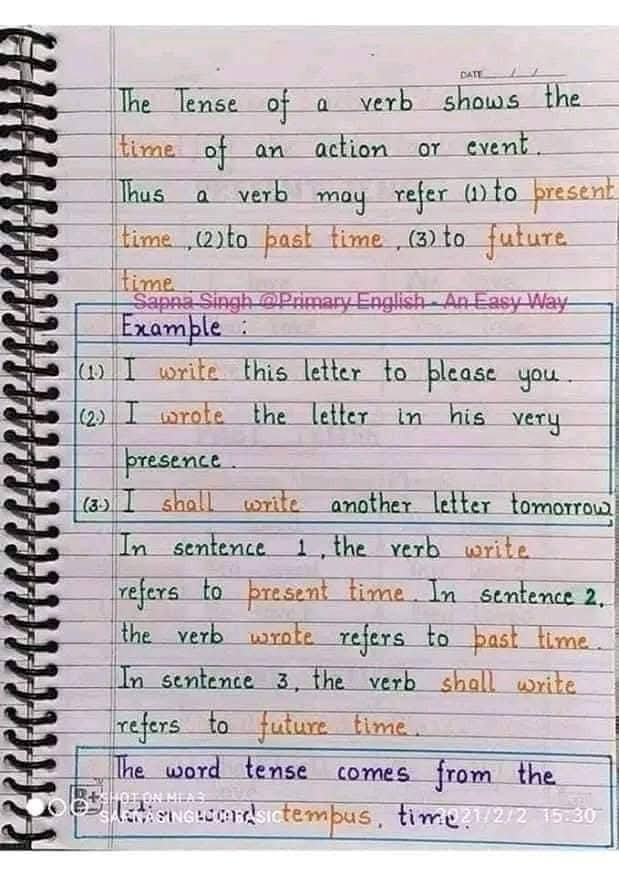 DATE / /
The Tense of a verb shows the
time of an action or event.
Thus a verb may refer (1) to present
time, (2) to past time, (3) to future
time.
Sapna Singh @Primary English - An Easy Way
Example :
(1.) I write this letter to please you.
(2.) I wrote the letter in his very
presence.
(3.) I shall write another letter tomorrow
In sentence 1, the verb write
refers to present time. In sentence 2,
the verb wrote refers to past time.
In sentence 3, the verb shall write
refers to future time.
The word tense comes from the
SHOT ON MI A3
word tempus, time.
2021/2/2 15:30